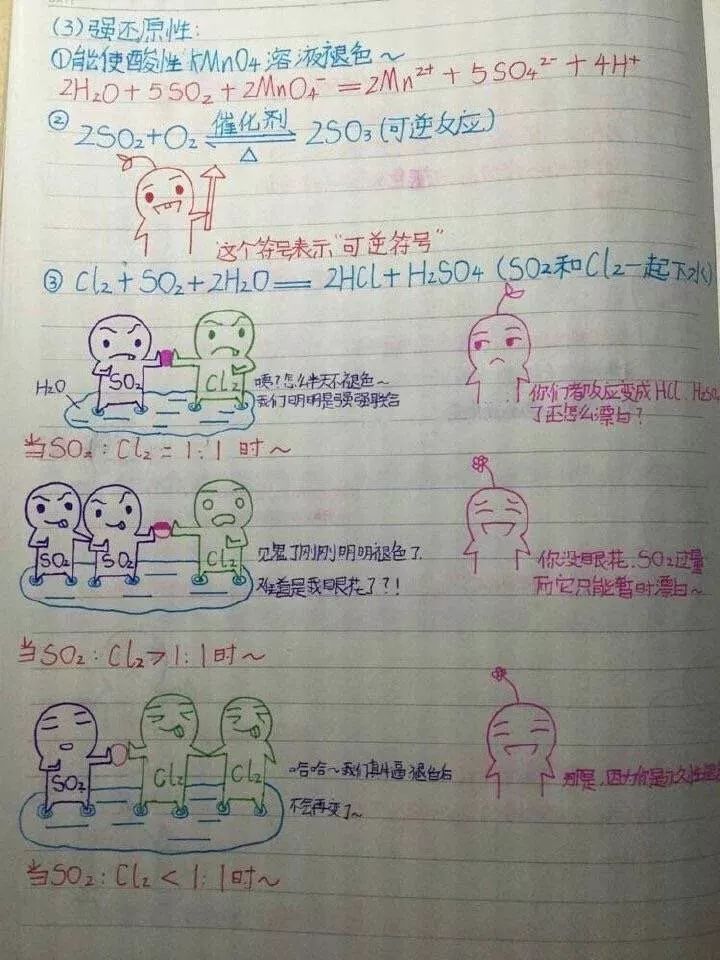 (3)强还原性:
①能使酸性KMnO4溶液褪色~
2H2O+5SO2+2MnO4⁻=2Mn²⁺+5SO4²⁻+4H⁺
② 2SO2+O2 催化剂 ⇌ △ 2SO3(可逆反应)
这个符号表示"可逆符号"
③ Cl2+SO2+2H2O=2HCl+H2SO4(SO2和Cl2一起下水)
SO2
Cl2
H2O
咦?怎么半天不褪色~
我们明明是强强联合
你们都反应变成HCl、H2SO4
了还怎么漂白?
当SO2:Cl2=1:1时~
SO2
SO2
Cl2
见鬼了刚刚明明褪色了
难道是我眼花了?!
你没眼花,SO2过量
而它只能暂时漂白~
当SO2:Cl2>1:1时~
SO2
Cl2
Cl2
哈哈~我们真牛逼褪色后
不会再变了~
那是,因为你是永久性
当SO2:Cl2<1:1时~